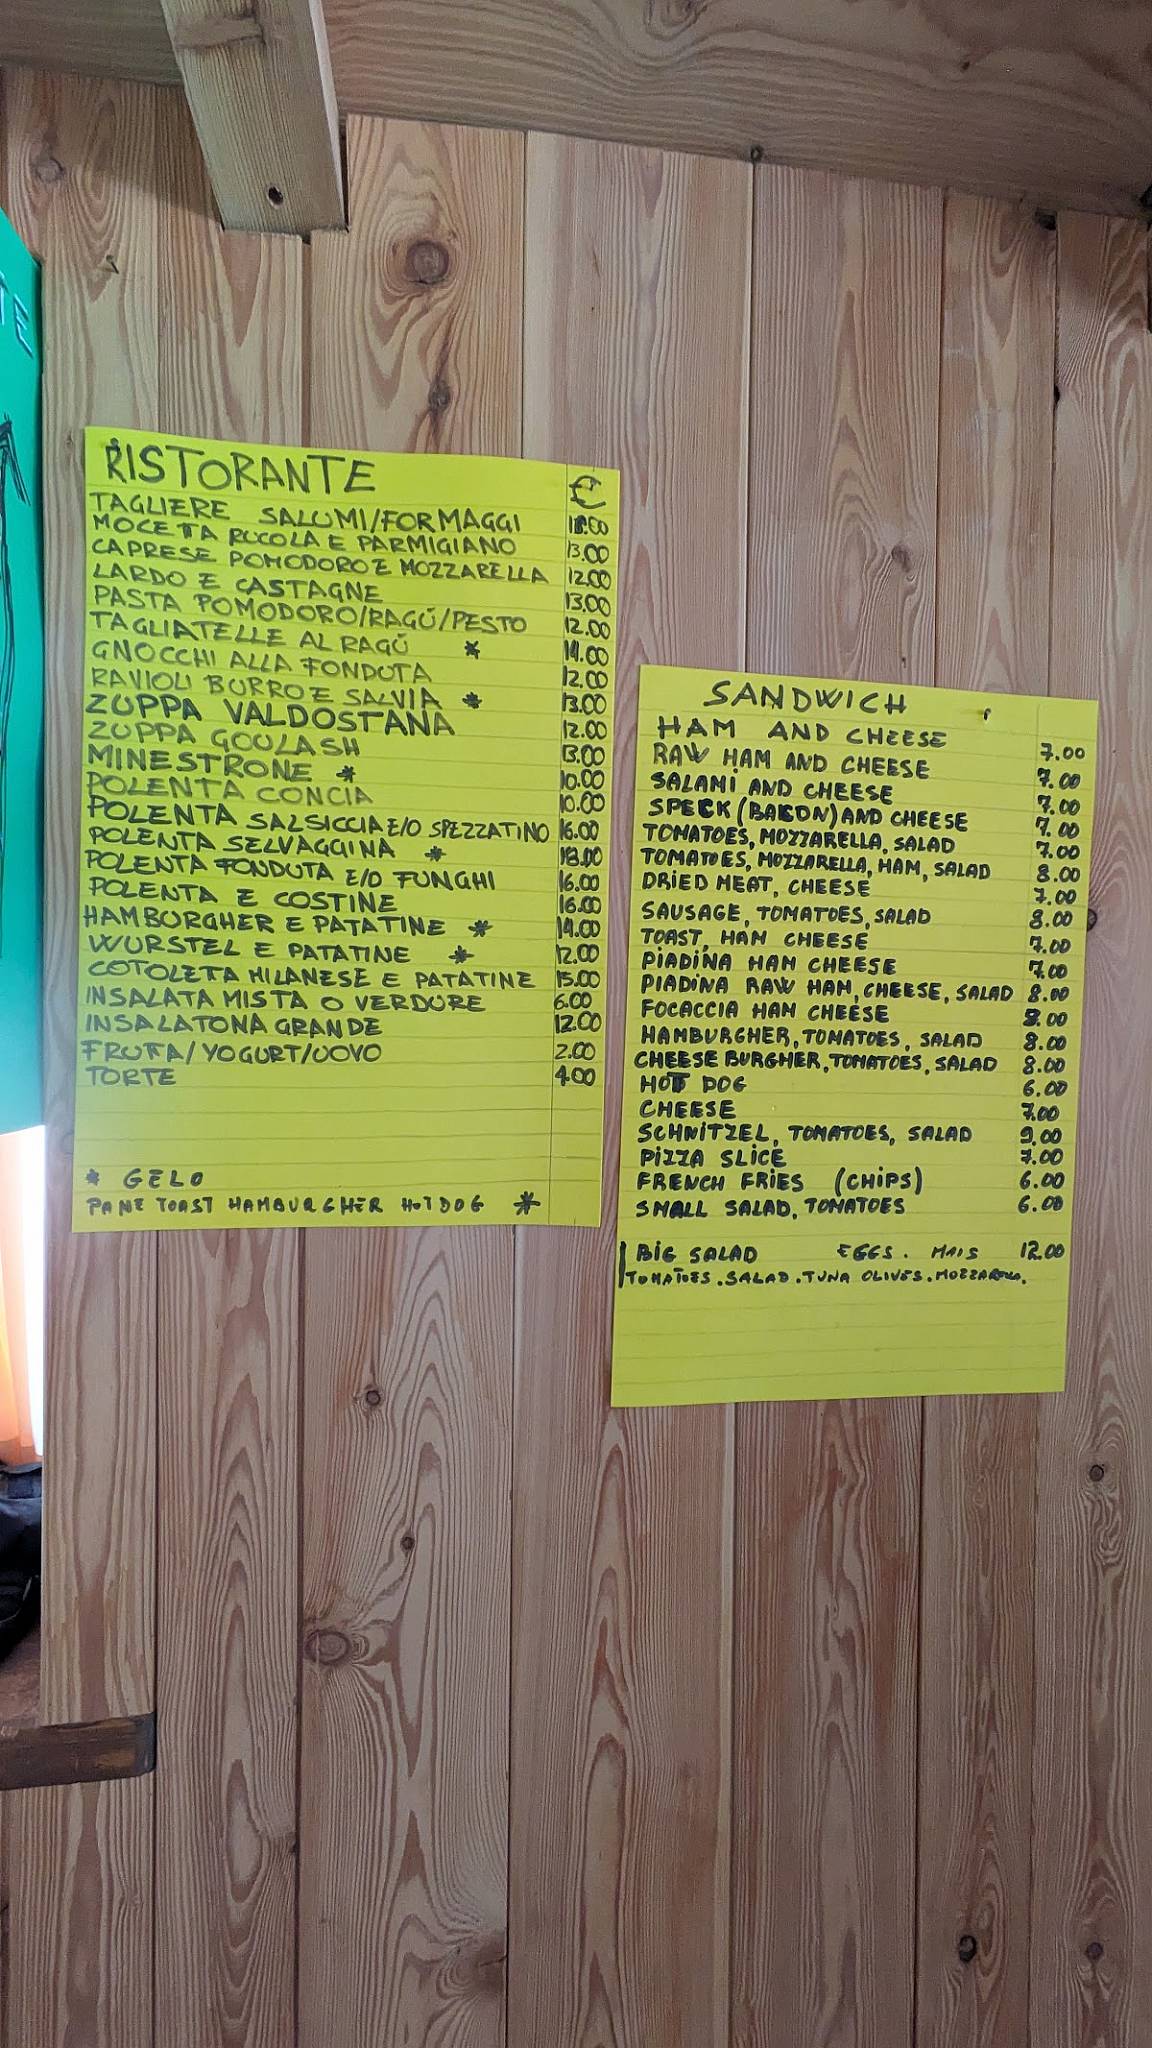 RISTORANTE €
TAGLIERE SALUMI/FORMAGGI
MOCETTA RUCOLA E PARMIGIANO 13.00
CAPRESE POMODORO E MOZZARELLA 12.00
LARDO E CASTAGNE 13.00
PASTA POMODORO/RAGÚ/PESTO 12.00
TAGLIATELLE AL RAGÚ * 14.00
GNOCCHI ALLA FONDUTA 12.00
RAVIOLI BURRO E SALVIA * 13.00
ZUPPA VALDOSTANA 12.00
ZUPPA GOULASH 13.00
MINESTRONE * 10.00
POLENTA CONCIA 10.00
POLENTA SALSICCIA E/O SPEZZATINO 16.00
POLENTA SELVAGGINA * 18.00
POLENTA FONDUTA E/O FUNGHI 16.00
POLENTA E COSTINE 16.00
HAMBURGHER E PATATINE * 14.00
WURSTEL E PATATINE * 12.00
COTOLETTA MILANESE E PATATINE 15.00
INSALATA MISTA O VERDURE 6.00
INSALATONA GRANDE 12.00
FRUTTA/YOGURT/UOVO 2.00
TORTE 4.00
* GELO
PANE TOAST HAMBURGHER HOTDOG *
SANDWICH
HAM AND CHEESE 7.00
RAW HAM AND CHEESE 7.00
SALAMI AND CHEESE 7.00
SPECK (BACON) AND CHEESE 7.00
TOMATOES, MOZZARELLA, SALAD 7.00
TOMATOES, MOZZARELLA, HAM, SALAD 8.00
DRIED MEAT, CHEESE 7.00
SAUSAGE, TOMATOES, SALAD 8.00
TOAST, HAM CHEESE 7.00
PIADINA HAM CHEESE 7.00
PIADINA RAW HAM, CHEESE, SALAD 8.00
FOCACCIA HAM CHEESE 8.00
HAMBURGHER, TOMATOES, SALAD 8.00
CHEESE BURGHER, TOMATOES, SALAD 8.00
HOT DOG 6.00
CHEESE 7.00
SCHNITZEL, TOMATOES, SALAD 9.00
PIZZA SLICE 7.00
FRENCH FRIES (CHIPS) 6.00
SMALL SALAD, TOMATOES 6.00
BIG SALAD EGGS. MAIS 12.00
TOMATOES. SALAD. TUNA OLIVES. MOZZARELLA.